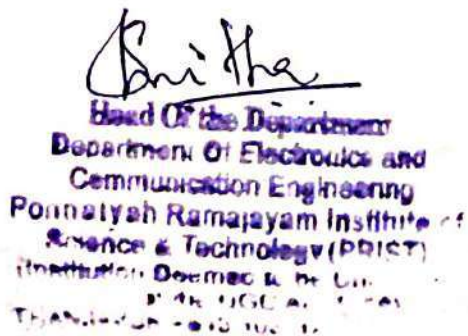 Head Of the Department
Department Of Electronics and
Communication Engineering
Ponnaiyah Ramajayam Institute of
Science & Technology (PRIST)
(Institution Deemed to be
UGC